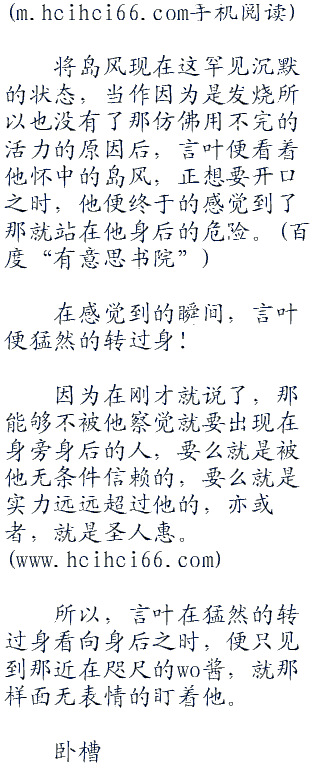 (m.hcihci66.com手机阅读)
将岛风现在这罕见沉默
的状态，当作因为是发烧所
以也没有了那仿佛用不完的
活力的原因后，言叶便看着
他怀中的岛风，正想要开口
之时，他便终于的感觉到了
那就站在他身后的危险。(百
度“有意思书院”)
在感觉到的瞬间，言叶
便猛然的转过身！
因为在刚才就说了，那
能够不被他察觉就要出现在
身旁身后的人，要么就是被
他无条件信赖的，要么就是
实力远远超过他的，亦或
者，就是圣人惠。
(www.hcihci66.com)
所以，言叶在猛然的转
过身看向身后之时，便只见
到那近在咫尺的wo酱，就那
样面无表情的盯着他。
卧槽